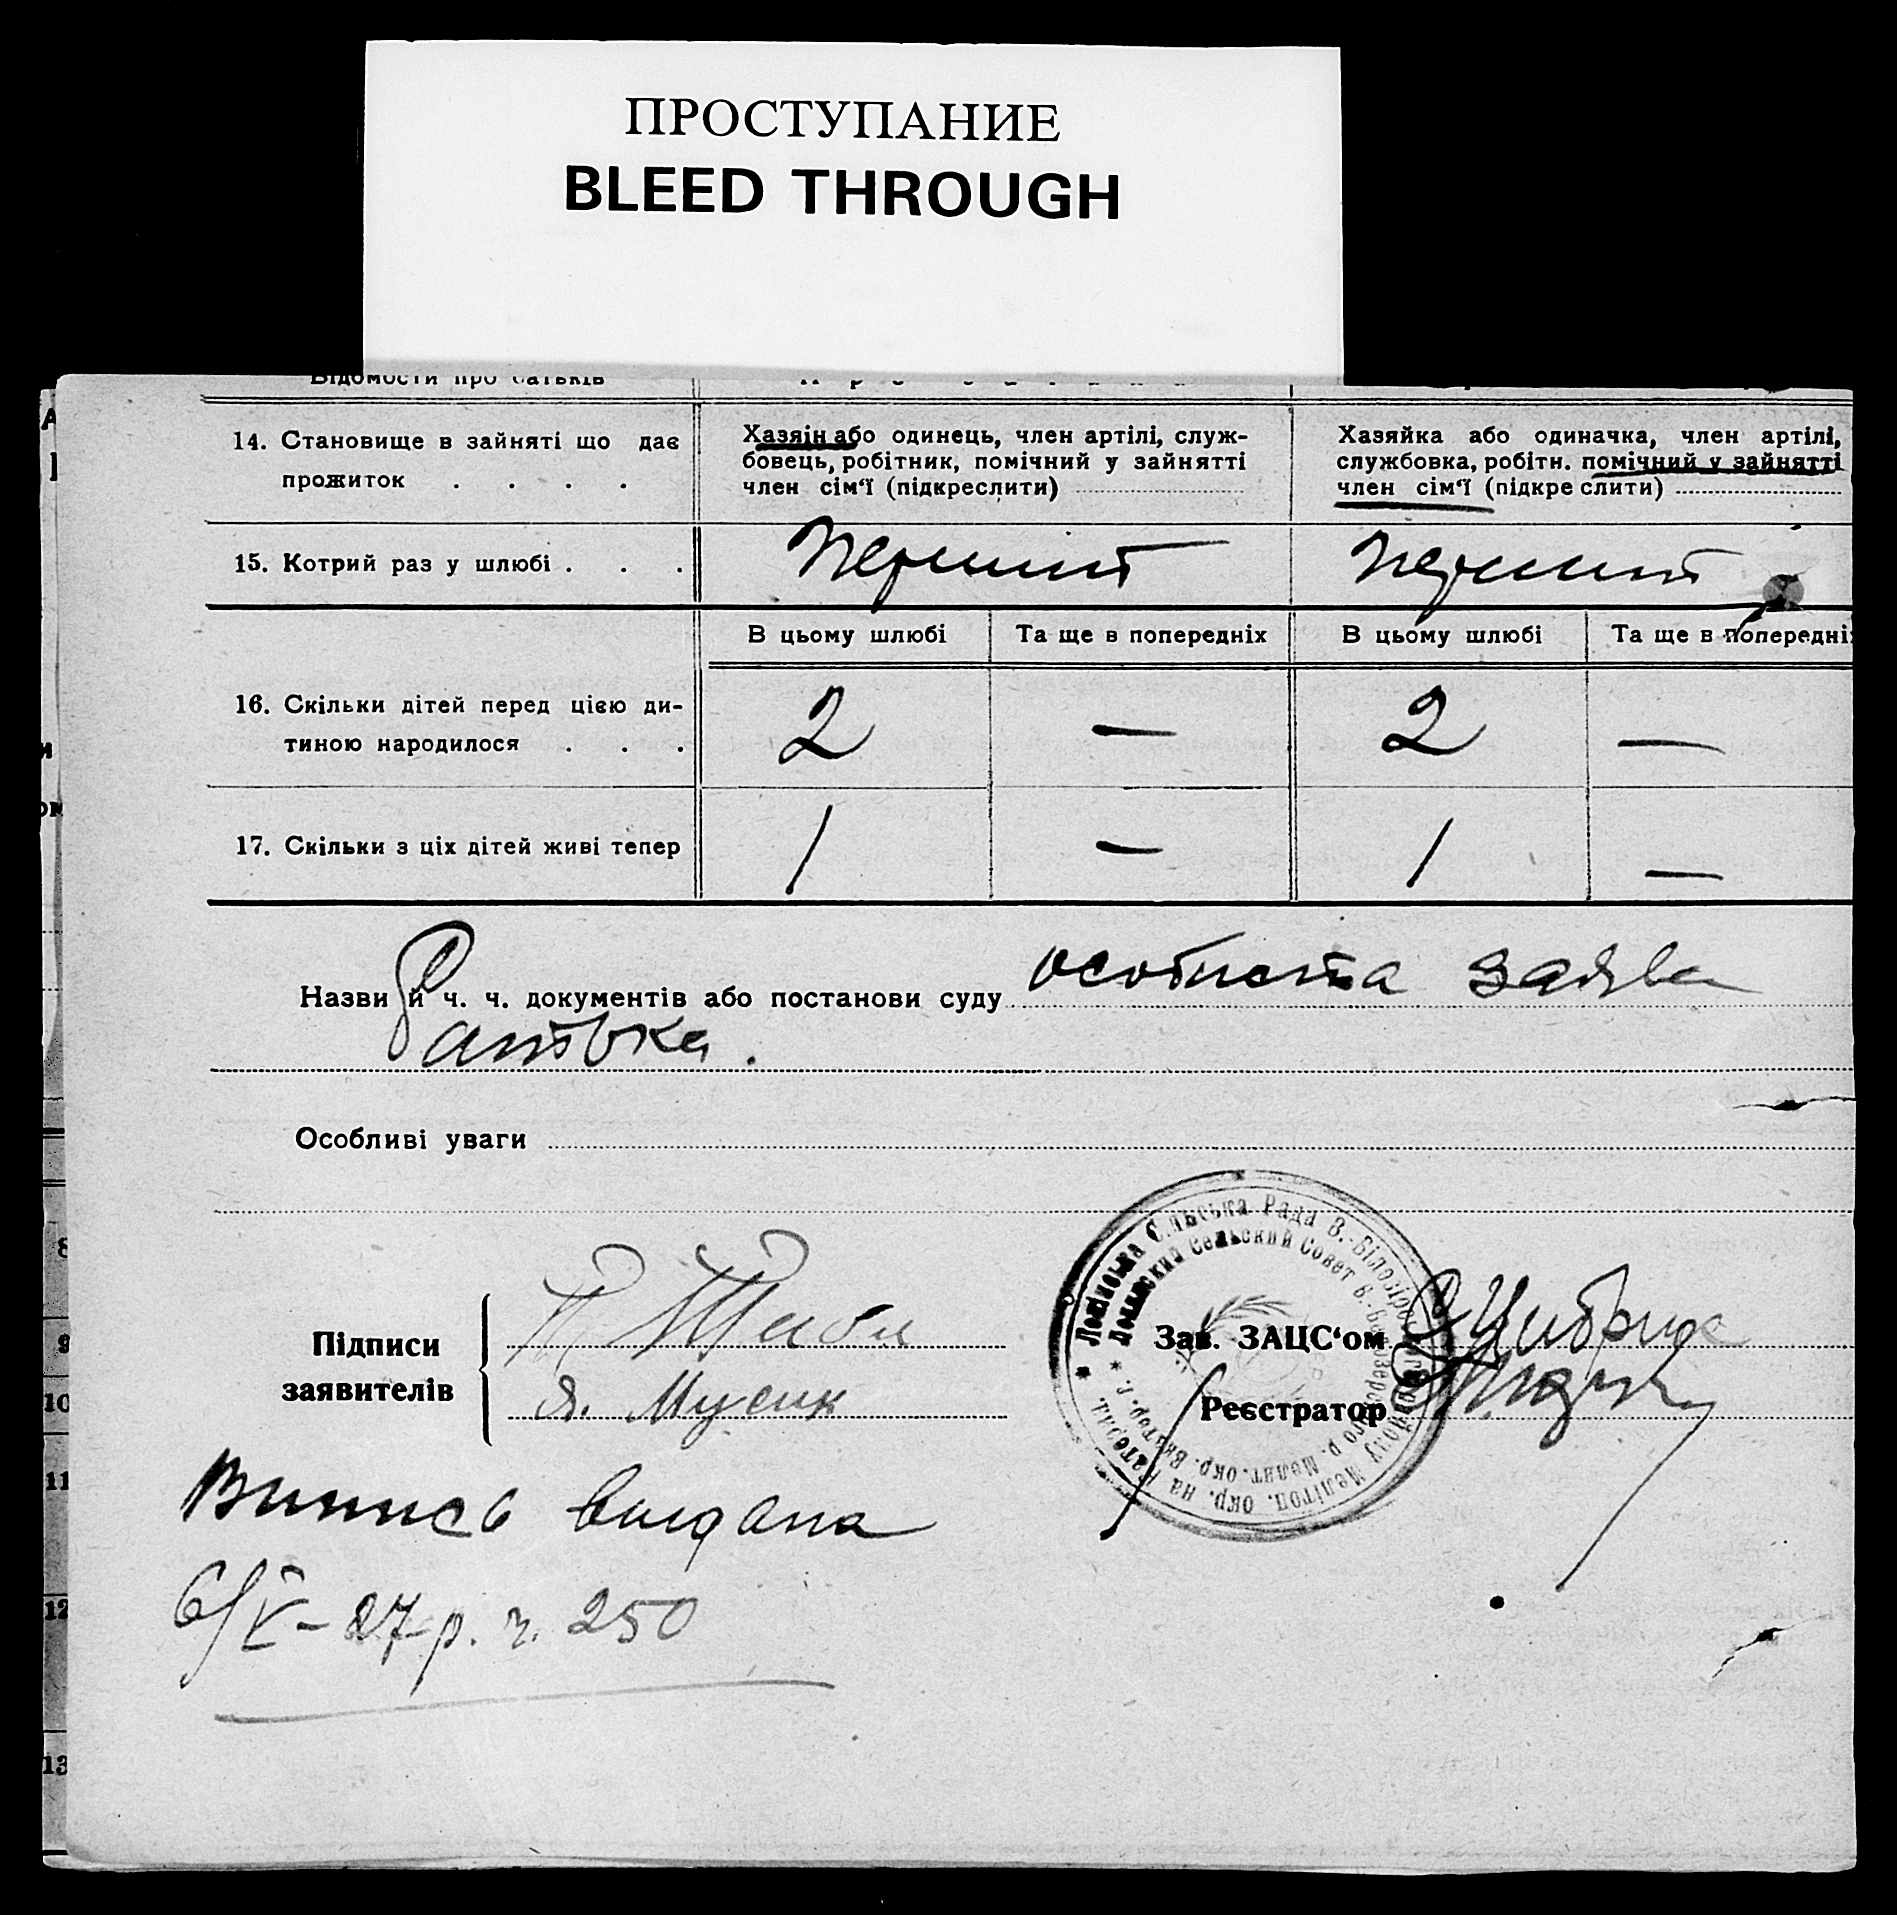 ПРОСТУПАНИЕ
BLEED THROUGH
Відомости про батьків
14. Становище в зайняті що дає
прожиток . . . .
Хазяін або одинець, член артілі, служ-
бовець, робітник, помічний у зайнятті
член сім'ї (підкреслити)
Хазяйка або одиначка, член артілі,
службовка, робітн. помічний у зайнятті
член сім'ї (підкреслити)
15. Котрий раз у шлюбі . . .
перший
перший
В цьому шлюбі
Та ще в попередніх
В цьому шлюбі
Та ще в попередні
16. Скільки дітей перед цією ди-
тиною народилося . . .
2
—
2
—
17. Скільки з ціх дітей живі тепер
1
—
1
—
Назви й ч. ч. документів або постанови суду особиста заява
батька.
Особливі уваги
Підписи
заявителів
Я. Мусик
Сільська Рада В.-Білозірс
Сельский Совет В.-Белозерского р. Мелит. окр. Екатер. г.
Мелітоп. окр. на Катерин.
Зав. ЗАЦС'ом
Реєстратор
Випись видана
6/V - 27 р. ч. 250
8
9
10
11
12
13